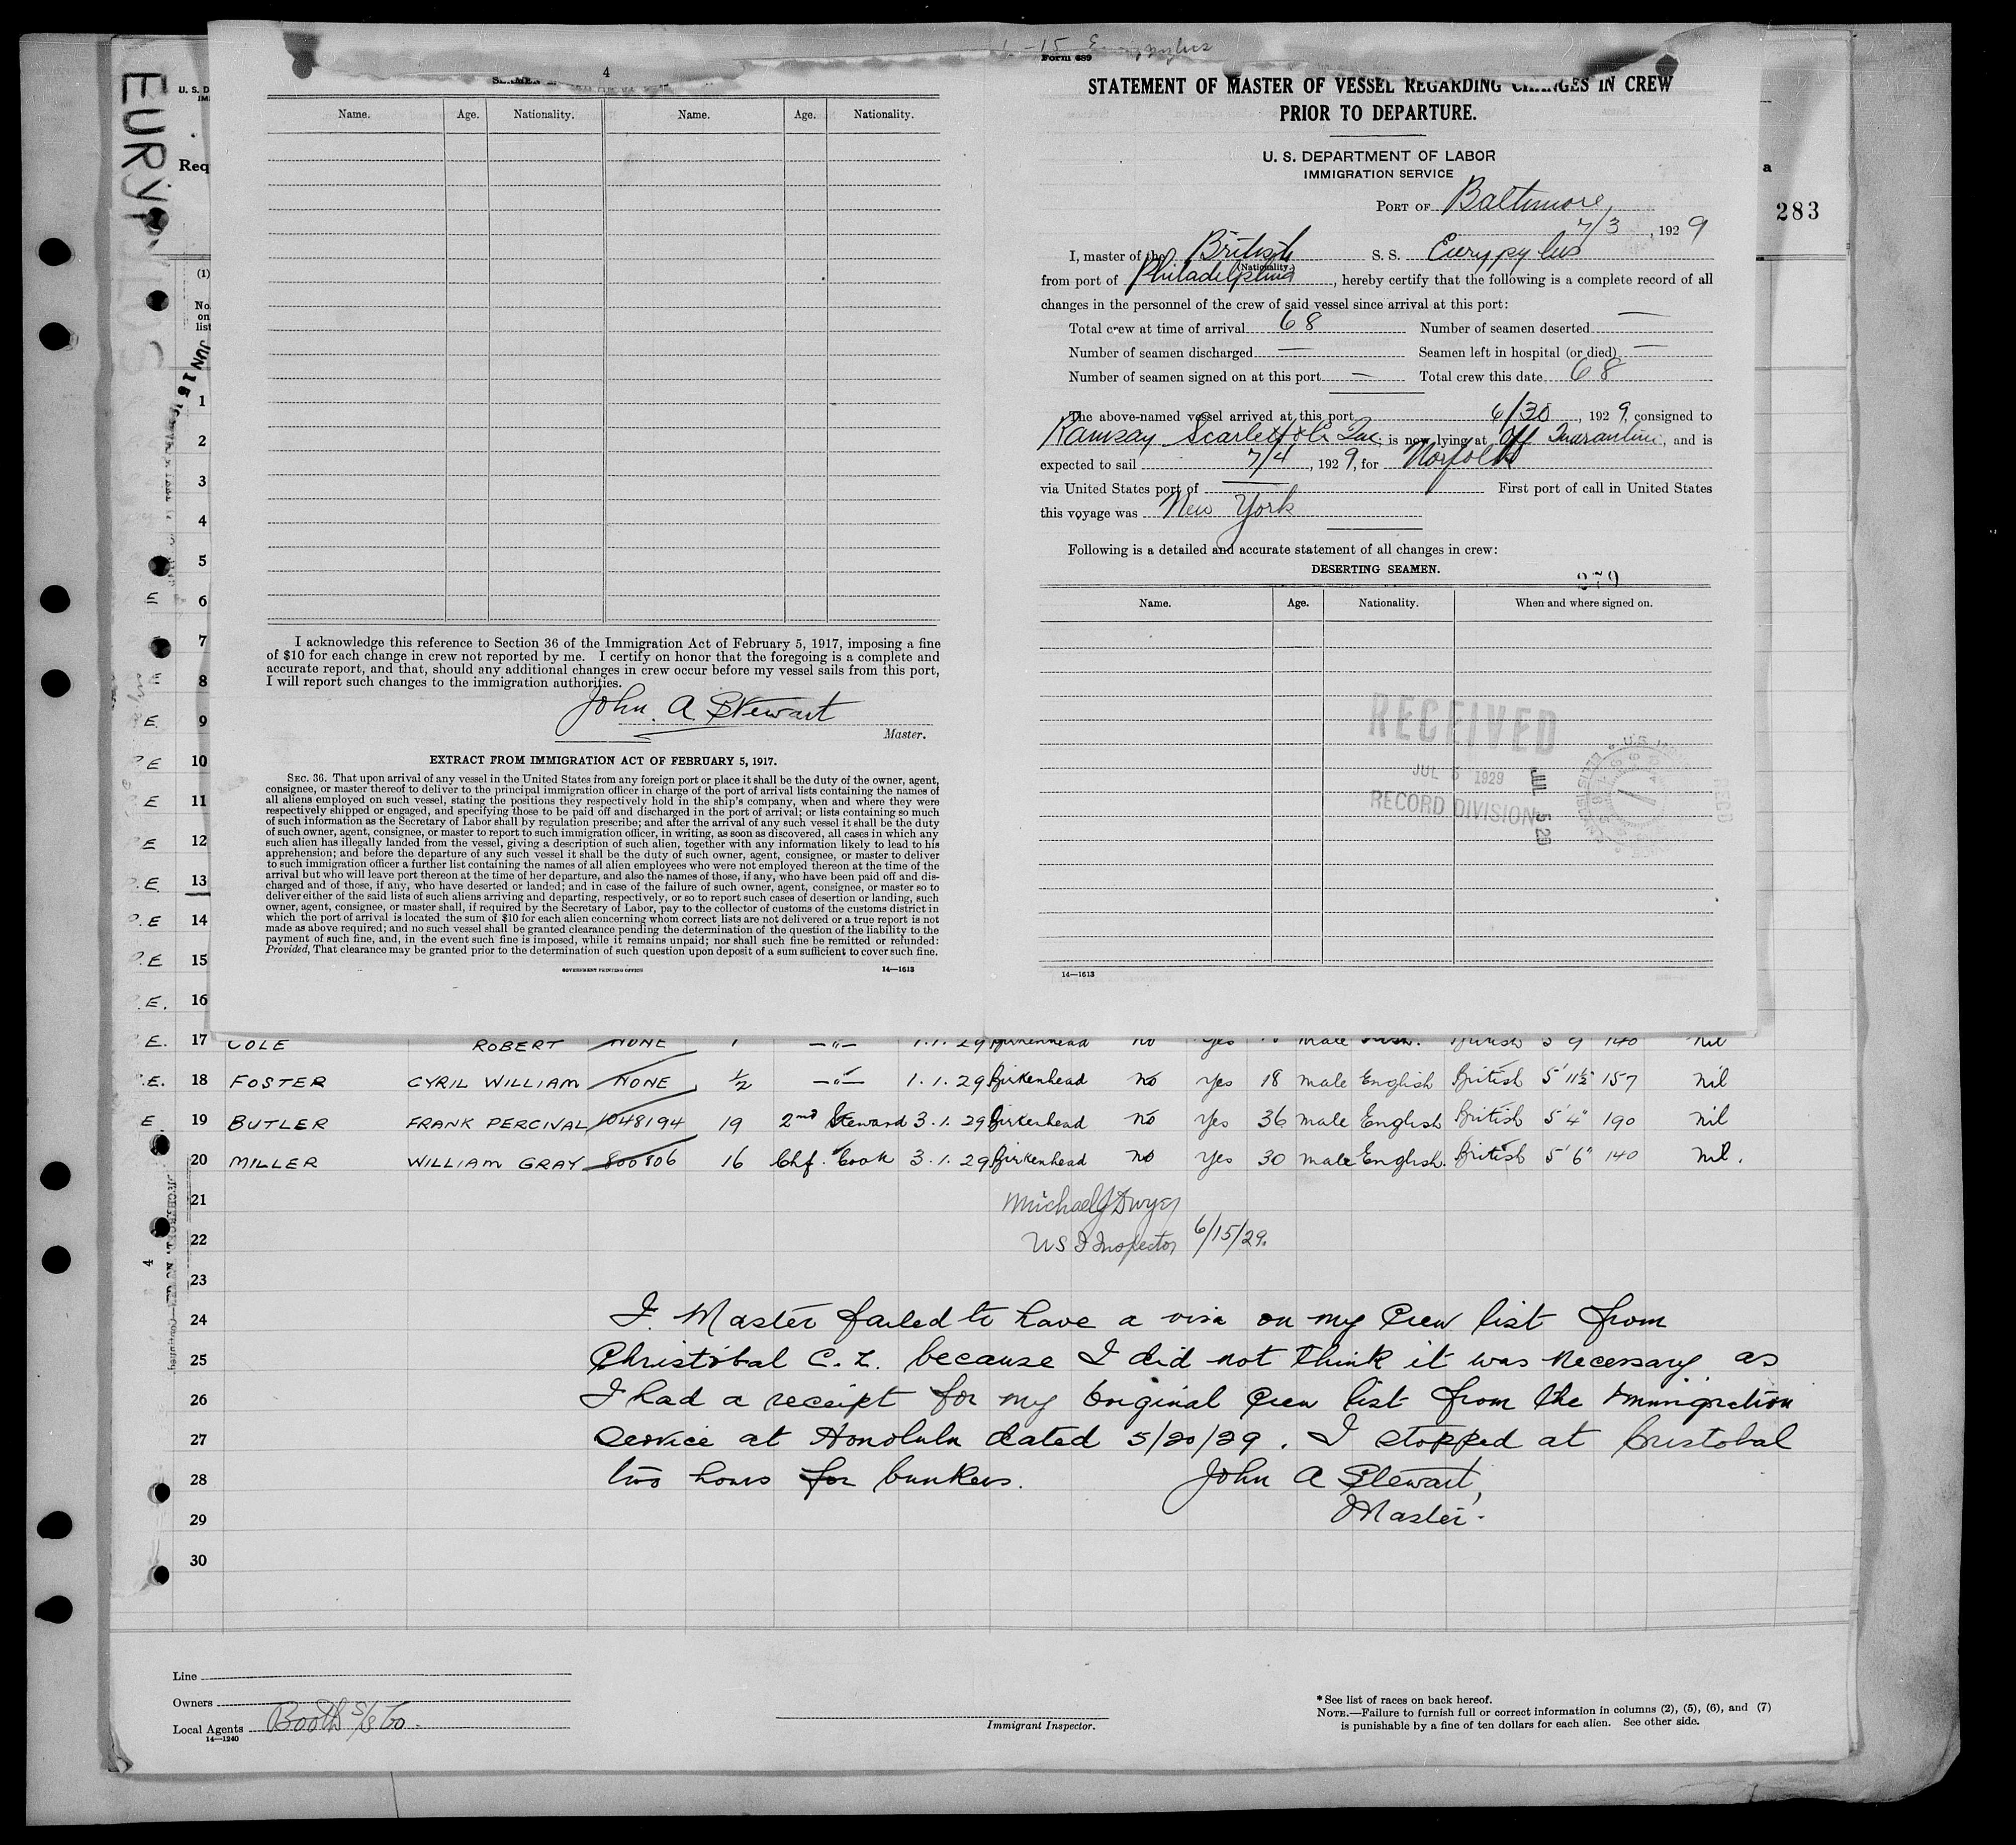 Form 689
4
Name. Age. Nationality. Name. Age. Nationality.
I acknowledge this reference to Section 36 of the Immigration Act of February 5, 1917, imposing a fine
of $10 for each change in crew not reported by me. I certify on honor that the foregoing is a complete and
accurate report, and that, should any additional changes in crew occur before my vessel sails from this port,
I will report such changes to the immigration authorities.
John A Stewart
Master.
EXTRACT FROM IMMIGRATION ACT OF FEBRUARY 5, 1917.
SEC. 36. That upon arrival of any vessel in the United States from any foreign port or place it shall be the duty of the owner, agent,
consignee, or master thereof to deliver to the principal immigration officer in charge of the port of arrival lists containing the names of
all aliens employed on such vessel, stating the positions they respectively hold in the ship's company, when and where they were
respectively shipped or engaged, and specifying those to be paid off and discharged in the port of arrival; or lists containing so much
of such information as the Secretary of Labor shall by regulation prescribe; and after the arrival of any such vessel it shall be the duty
of such owner, agent, consignee, or master to report to such immigration officer, in writing, as soon as discovered, all cases in which any
such alien has illegally landed from the vessel, giving a description of such alien, together with any information likely to lead to his
apprehension; and before the departure of any such vessel it shall be the duty of such owner, agent, consignee, or master to deliver
to such immigration officer a further list containing the names of all alien employees who were not employed thereon at the time of the
arrival but who will leave port thereon at the time of her departure, and also the names of those, if any, who have been paid off and dis-
charged and of those, if any, who have deserted or landed; and in case of the failure of such owner, agent, consignee, or master so to
deliver either of the said lists of such aliens arriving and departing, respectively, or so to report such cases of desertion or landing, such
owner, agent, consignee, or master shall, if required by the Secretary of Labor, pay to the collector of customs of the customs district in
which the port of arrival is located the sum of $10 for each alien concerning whom correct lists are not delivered or a true report is not
made as above required; and no such vessel shall be granted clearance pending the determination of the question of the liability to the
payment of such fine, and, in the event such fine is imposed, while it remains unpaid; nor shall such fine be remitted or refunded:
Provided, That clearance may be granted prior to the determination of such question upon deposit of a sum sufficient to cover such fine.
GOVERNMENT PRINTING OFFICE 14—1613
STATEMENT OF MASTER OF VESSEL REGARDING CHANGES IN CREW
PRIOR TO DEPARTURE.
U. S. DEPARTMENT OF LABOR
IMMIGRATION SERVICE
PORT OF Baltimore
7/3, 1929
I, master of the British S. S. Eurypylus
(Nationality.)
from port of Philadelphia, hereby certify that the following is a complete record of all
changes in the personnel of the crew of said vessel since arrival at this port:
Total crew at time of arrival 68 Number of seamen deserted —
Number of seamen discharged — Seamen left in hospital (or died) —
Number of seamen signed on at this port — Total crew this date 68
The above-named vessel arrived at this port 6/30, 1929, consigned to
Ramsay Scarlett & Co Inc. is now lying at Off Quarantine, and is
expected to sail 7/4, 1929, for Norfolk
via United States port of — First port of call in United States
this voyage was New York
Following is a detailed and accurate statement of all changes in crew:
DESERTING SEAMEN.
279
Name. Age. Nationality. When and where signed on.
RECEIVED
JUL 5 1929
RECORD DIVISION
JUL 5 29
14—1613
283
a
U. S. D
Req
(1)
No.
on
list
1
2
3
4
5
6
7
8
9
10
11
12
13
14
15
16
17 COLE ROBERT NONE 1 —"— 1.1.29 Birkenhead no yes male British 5 9 140 nil
18 FOSTER CYRIL WILLIAM NONE 1/2 —"— 1.1.29 Birkenhead no yes 18 male English British 5' 11½ 157 nil
19 BUTLER FRANK PERCIVAL 1048194 19 2nd Steward 3.1.29 Birkenhead no yes 36 male English British 5' 4" 190 nil
20 MILLER WILLIAM GRAY 800806 16 Chf. Cook 3.1.29 Birkenhead no yes 30 male English. British 5' 6" 140 nil.
21 Michael J Dwyer
22 US I Inspector 6/15/29.
23
24 I Master failed to have a visa on my Crew list from
25 Christobal C. Z. because I did not think it was necessary as
26 I had a receipt for my original Crew list from the Immigration
27 Service at Honolulu dated 5/20/29. I stopped at Cristobal
28 two hours for bunkers. John A Stewart,
29 Master.
30
Line
Owners
Local Agents Booth S/S Co.
14—1240
Immigrant Inspector.
* See list of races on back hereof.
NOTE.—Failure to furnish full or correct information in columns (2), (5), (6), and (7)
is punishable by a fine of ten dollars for each alien. See other side.